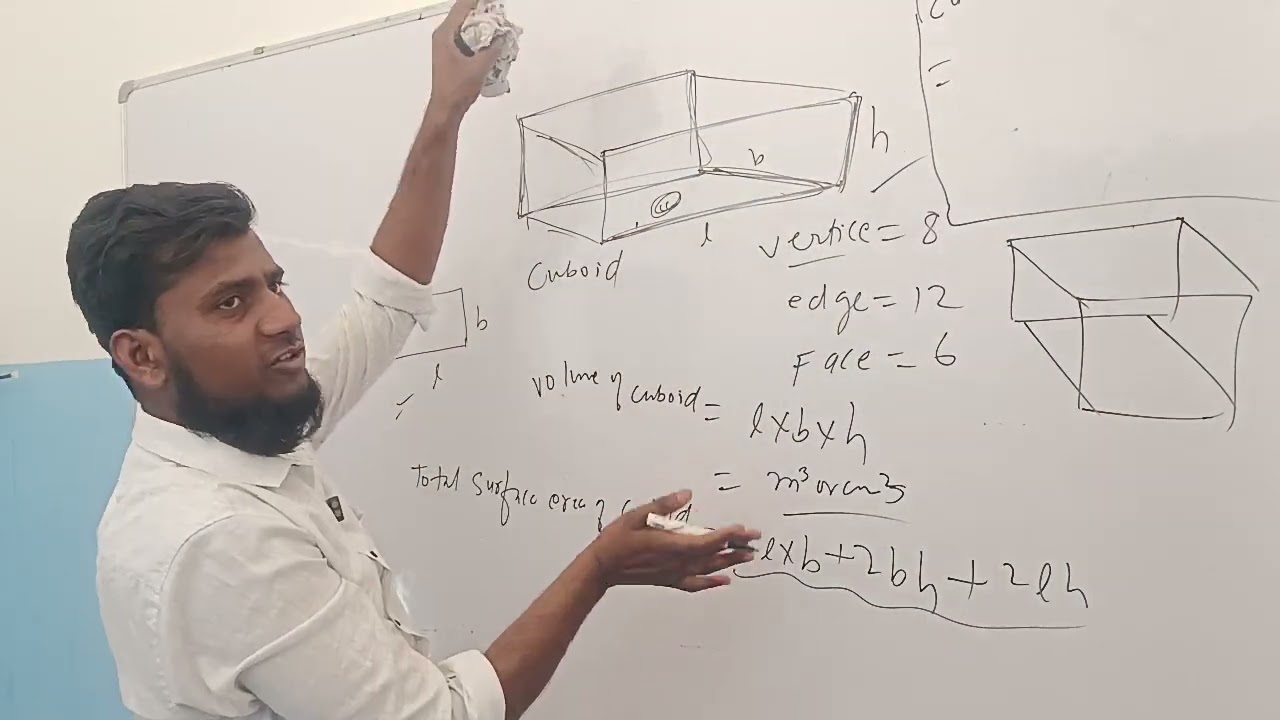 h
b
l
Cuboid
b
l
vertice = 8
edge = 12
Face = 6
volume of cuboid = l×b×h
= m³ or cm³
Total surface area of
l×b + 2bh + 2lh
=